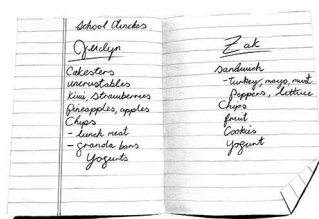 School lunches
Jerilyn
Cakesters
uncrustables
Kiwi, Strawberries
Pineapples, apples
Chips
- lunch meat
- granola bars
Yogurts
Zak
Sandwich
- turkey, mayo, must
Peppers, lettuce
Chips
fruit
Cookies
Yogurt